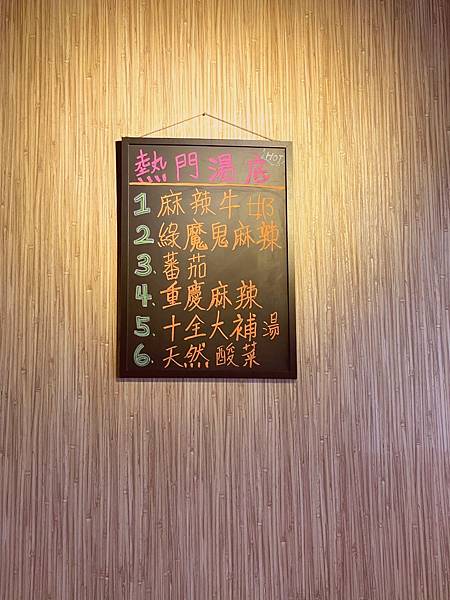 熱門湯底 HOT
1 麻辣牛奶
2 綠魔鬼麻辣
3. 蕃茄
4. 重慶麻辣
5. 十全大補湯
6. 天然酸菜